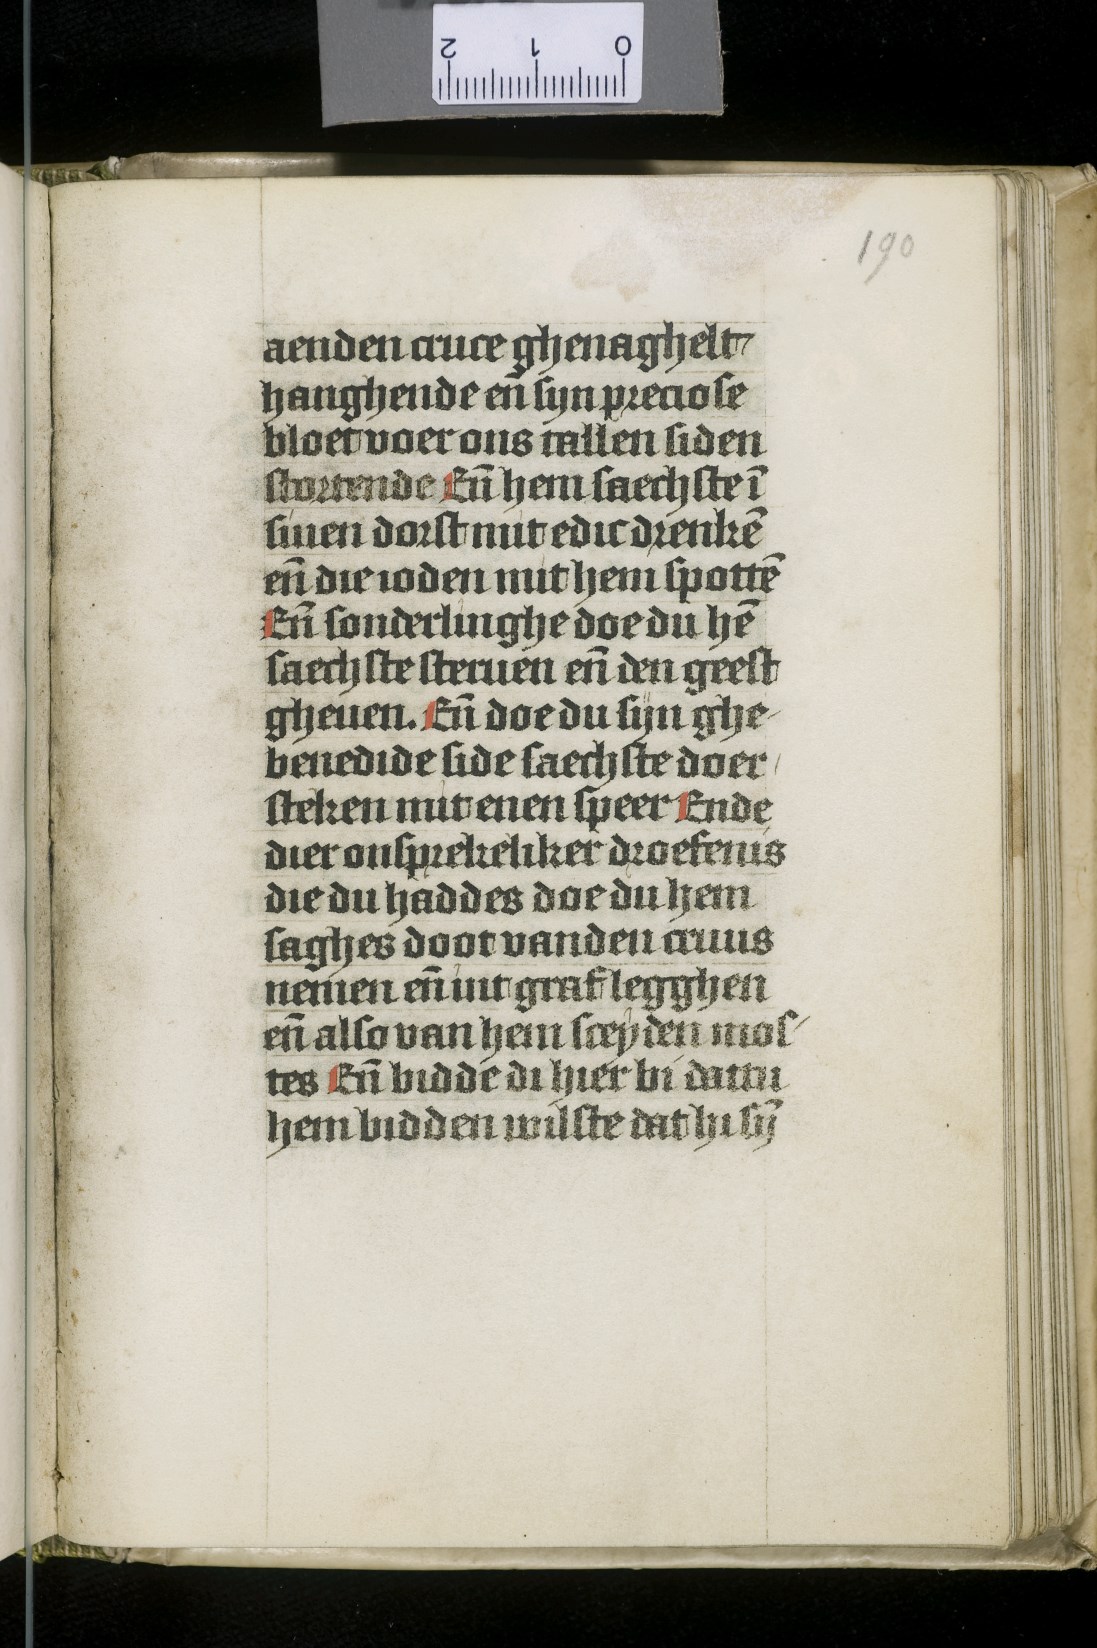 190
aenden cruce ghenaghelt
hanghende en̄ sijn preciose
bloet voer ons tallen siden
stortende En̄ hem saechste ī
sinen dorst mit edic drenkē
en̄ die ioden mit hem spottē
En̄ sonderlinghe doe du hē
saechste steruen en̄ den geest
gheuen. En̄ doe du sijn ghe-
benedide side saechste doer
steken mit enen speer Ende
dier onsprekeliker droefenis
die du haddes doe du hem
saghes doot vanden cruus
nemen en̄ int graf legghen
en̄ also van hem sceyden mos-
tes En̄ bidde di hier bi dattu
hem bidden wilste dat hi sȳ
0 1 2